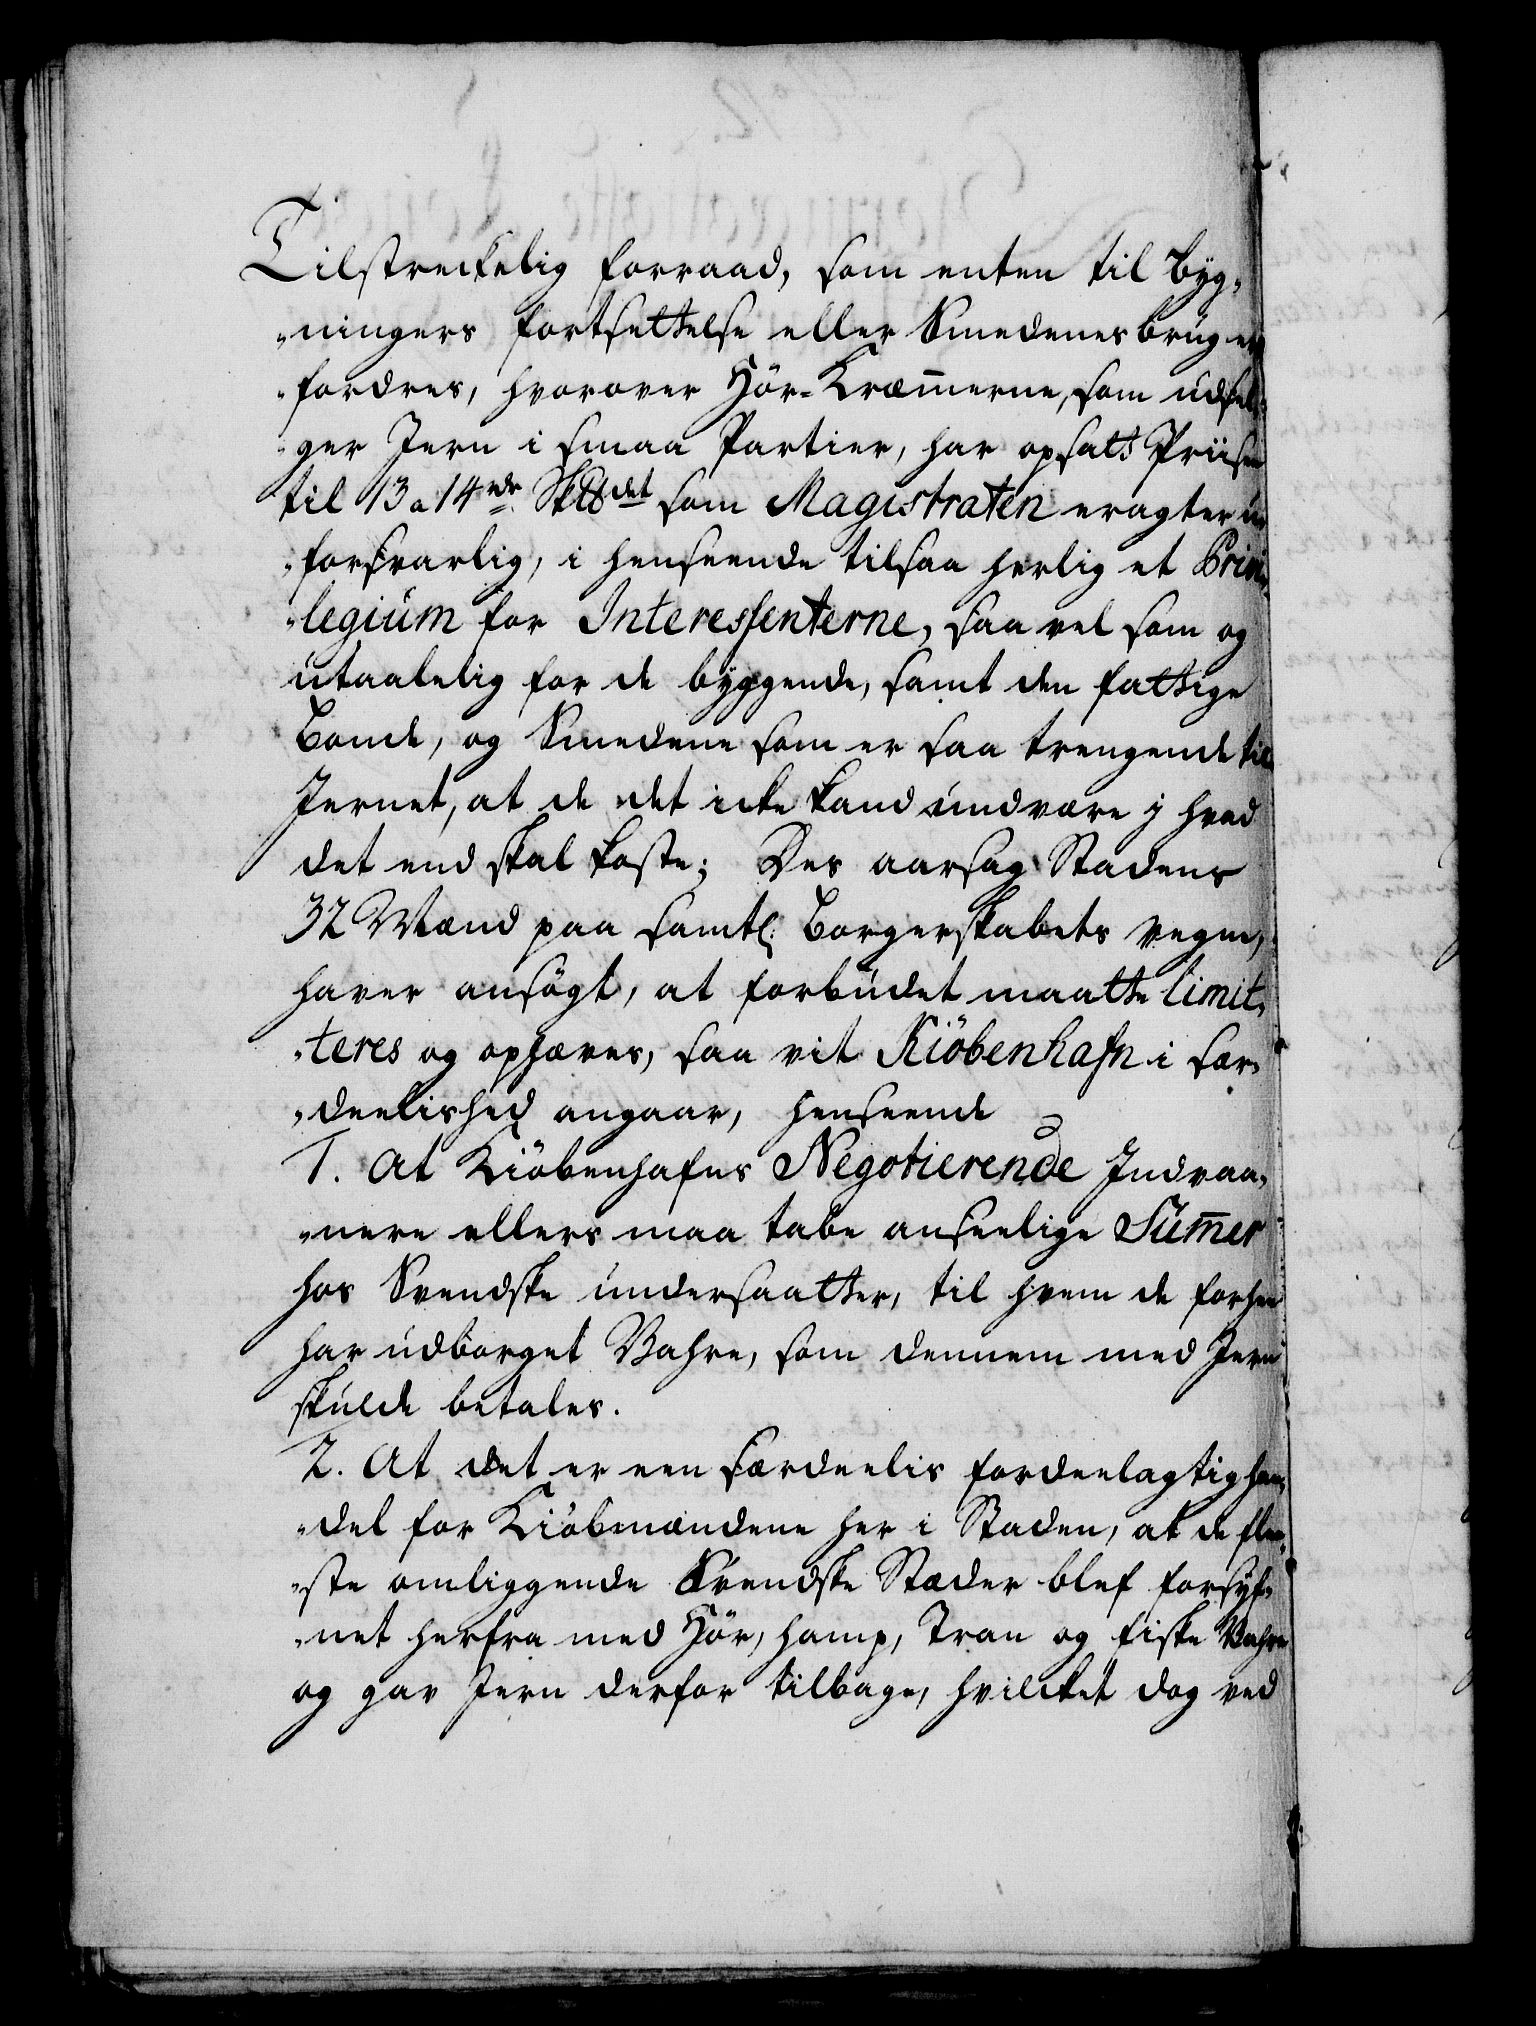 Tilstreckelig forraad, som enten til Byg-
-ningers fortsettelse eller Smedenes brug er
-fordres, hvorover Hör-Kræm̄erne, som udsel-
-ger Jern i smaa Partier, har opsatt Priisen
til 13 a 14 rdr. Sk℔det som Magistraten eragter u
-forsvarlig, i henseende til saa herlig et Privi-
-legium for Interessenterne, saa vel som og
utaalelig for de byggende, samt den fattige
Bonde, og Smedene som er saa trengende til
Jernet, at de det icke kand undvære j hvad
det end skal koste; Des aarsag Stadens
32 Mænd paa samtl: Borgerskabets vegne,
haver ansögt, at forbudet maatte limit-
-teres og ophæves, saa vit Kiöbenhafn i sær-
-deelished angaar, henseende
1. At Kiöbenhafns Negotierende Indvaa-
-nere ellers maa tabe anseelige Sum̄er
hos Svendske undersaatter, til hvem de forhen
har udborget Vahre, som dennem med Jern
skulde betales.
2. At det er een særdeelis fordeelagtig han-
-del for Kiöbmændene her i Staden, at de flee-
-ste omliggende Svendske Stæder blef forsyf-
-net herfra med Hör, hamp, Tran og fiske Vahre
og gav Jern derfor tilbage, hvilcket dog ved